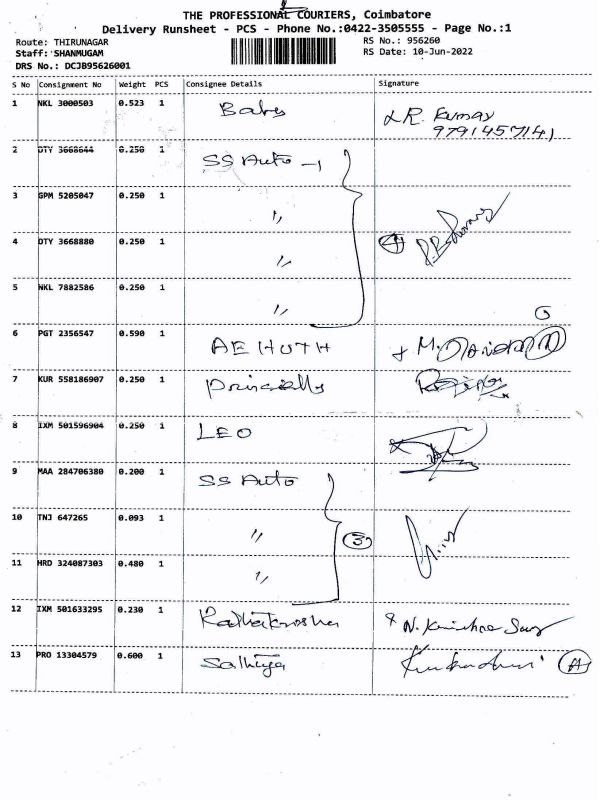 THE PROFESSIONAL COURIERS, Coimbatore
Delivery Runsheet - PCS - Phone No.:0422-3505555 - Page No.:1
Route: THIRUNAGAR
RS No.: 956260
Staff: SHANMUGAM
RS Date: 10-Jun-2022
DRS No.: DCJB95626001
S No Consignment No Weight PCS Consignee Details Signature
1 NKL 3000503 0.523 1 Baby R. Kumar
9791457141
2 DTY 3668644 0.250 1 SS Auto -1
3 GPM 5205047 0.250 1 "
4 DTY 3668880 0.250 1 " 4
5 NKL 7882586 0.250 1 "
6 PGT 2356547 0.590 1 M.
7 KUR 558186907 0.250 1
8 IXM 501596904 0.250 1 LEO
9 MAA 284706380 0.200 1 SS Auto
10 TNJ 647265 0.093 1 " 3
11 HRD 324087303 0.480 1 "
12 IXM 501633295 0.230 1 N.
13 PRO 13304579 0.600 1 Sathiya A